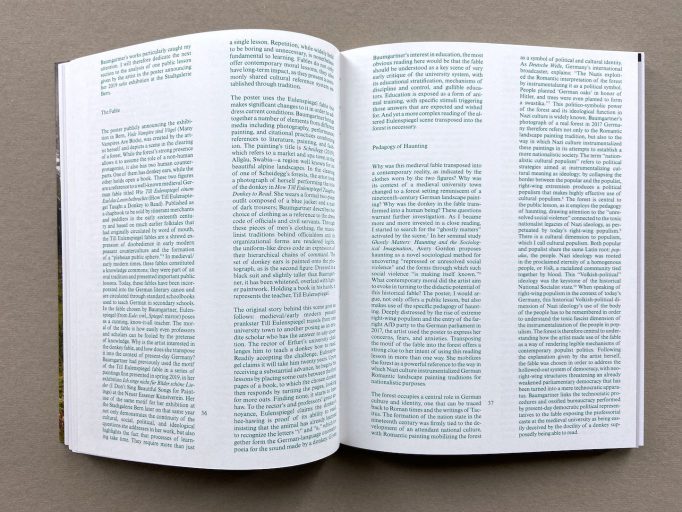 Baumgartner's works particularly caught my
attention. I will therefore dedicate the next
section to the analysis of one public lesson
given by the artist in the poster announcing
her 2019 solo exhibition at the Stadtgalerie
Bern.
The Fable
The poster publicly announcing the exhibi-
tion in Bern,
(Many
Vampires Are Birds), was created by the art-
ist herself and depicts a scene in the clearing
of a forest. While the forest's strong presence
allows it to assume the role of a non-human
protagonist, it also has two human counter-
parts. One of them has donkey ears, while the
other holds open a book. These two figures
are a reference to a well-known medieval Ger-
man fable titled Wie Till Eulenspiegel einem
Esel das Lesen beibrachte (How Till Eulenspie-
gel Taught a Donkey to Read). Published as
a chapbook to be sold by itinerant merchants
and peddlers in the early sixteenth centu-
ry and based on much earlier folktales that
had originally circulated by word of mouth,
the Till Eulenspiegel fables are a shrewd ex-
pression of disobedience in early modern
peasant counterculture and the formation
of a "plebeian public sphere." In medieval/
early modern times, these fables constituted
a knowledge commons; they were part of an
oral tradition and presented important public
lessons. Today, these fables have been incor-
porated into the German literary canon and
are circulated through standard schoolbooks
used to teach German in secondary schools.
In the fable chosen by Baumgartner, Eulen-
spiegel (from Eule: owl, Spiegel: mirror) poses
as a cunning, know-it-all teacher. The mor-
al of the fable is how easily even professors
and scholars can be fooled by the pretense
of knowledge. Why is the artist interested in
the donkey fable, and how does she transpose
it into the context of present-day Germany?
Baumgartner had previously used the motif
of the Till Eulenspiegel fable in a series of
paintings first presented in spring 2019, in her
exhibition Ich singe nicht für Bilder schöne Lie-
der (I Don't Sing Beautiful Songs for Paint-
ings) at the Neuer Essener Kunstverein. Her
use of the same motif in her exhibition at
the Stadtgalerie Bern later on that same year
not only demonstrates the continuity of the
cultural, social, political, and ideological
questions she addresses in her work, but also
highlights the fact that processes of learn-
ing take time. They require more than just
56
a single lesson. Repetition, while widely held
to be boring and unnecessary, is nonetheless
fundamental to learning. Fables do not just
offer contemporary moral lessons, they also
have long-term impact, as they present com-
monly shared cultural reference systems es-
tablished through tradition.
The poster uses the Eulenspiegel fable but
makes significant changes to it in order to ad-
dress current conditions. Baumgartner brings
together a number of elements from different
media including photography, performance,
painting, and citational practices connecting
references to literature, painting, and fash-
ion. The painting's title is
which refers to a market and spa town in the
Allgäu, Swabia—a region well known for its
beautiful alpine landscapes. In the clearing
of one of Scheidegg's forests, the artist
a photograph of herself performing the role
of the donkey in How Till Eulenspiegel Taught a
Donkey to Read. She wears a formal two-piece
outfit composed of a blue jacket and a pair
of dark trousers; Baumgartner describes this
choice of clothing as a reference to the dress
code of officials and civil servants. Through
these pieces of men's clothing, the mascu-
linist traditions behind officialdom and its
organizational forms are rendered legible;
the uniform-like dress code an expression of
their hierarchical chains of command. The
set of donkey ears is painted onto the pho-
tograph, as is the second figure. Dressed in a
black suit and slightly taller than Baumgart-
ner, it has been whitened, overlaid with light-
er paintwork. Holding a book in his hands, it
represents the teacher, Till Eulenspiegel.
The original story behind this scene goes as
follows: medieval/early modern peasant
prankster Till Eulenspiegel travels from one
university town to another posing as an eru-
dite scholar who has the answer to any ques-
tion. The rector of Erfurt's university chal-
lenges him to teach a donkey how to read.
Readily accepting the challenge, Eulenspie-
gel claims it will take him twenty years. Upon
receiving a substantial advance, he begins the
lessons by placing some oats between the
pages of a book, to which the clever donkey
then responds by turning the pages, looking
for more oats. Finding none, it starts to hee-
haw. To the rector's and professors' great an-
noyance, Eulenspiegel claims the donkey's
hee-hawing is proof of its ability to read,
insisting that the animal has already learned
to recognize the letters "i" and "a," which to-
gether form the German-language onomato-
poeia for the sound made by a donkey. Given
Baumgartner's interest in education, the most
obvious reading here would be that the fable
should be understood as a key scene of very
early critique of the university system, with
its educational stratification, mechanisms of
discipline and control, and gullible educa-
tors. Education is exposed as a form of ani-
mal training, with specific stimuli triggering
those answers that are expected and wished
for. And yet a more complex reading of the al-
tered Eulenspiegel scene transposed into the
forest is necessary.
Pedagogy of Haunting
Why was this medieval fable transposed into
a contemporary reality, as indicated by the
clothes worn by the two figures? Why was
its context of a medieval university town
changed to a forest setting reminiscent of a
nineteenth-century German landscape paint-
ing? Why was the donkey in the fable trans-
formed into a human being? These questions
warrant further investigation. As I became
more and more invested in a close reading,
I started to search for the "ghostly matters"
activated by the scene. In her seminal study
Ghostly Matters: Haunting and the Sociolog-
ical Imagination, Avery Gordon proposes
haunting as a novel sociological method for
uncovering "repressed or unresolved social
violence" and the forms through which such
social violence "is making itself known."
What contemporary moral did the artist aim
to evoke in turning to the didactic potential of
this historical fable? The poster, I would ar-
gue, not only offers a public lesson, but also
makes use of the specific pedagogy of haunt-
ing. Deeply distressed by the rise of extreme
right-wing populism and the entry of the far-
right AfD party to the German parliament in
2017, the artist used the poster to express her
concerns, fears, and anxieties. Transposing
the motif of the fable into the forest offers a
major clue to her intent of using this reading
to teach us more than one way. She mobilizes
the forest as a powerful reference to the way in
which Nazi culture instrumentalized German
Romantic landscape painting traditions for
nationalistic purposes.
The forest occupies a central role in German
culture and identity, one that can be traced
back to Roman times and the writings of Tac-
itus. The formation of the nation state in the
nineteenth century was firmly tied to the de-
velopment of an attendant national culture,
with Romantic painting mobilizing the forest
57
as a symbol of political and cultural identity.
As Deutsche Welle, Germany's international
broadcaster, explains: "The Nazis exploit-
ed the Romantic interpretation of the forest
by instrumentalizing it as a political symbol.
People planted 'German oaks' in honor of
Hitler, and trees were even planted to form
a swastika." This politico-symbolic power
of the forest and its ideological function in
Nazi culture is widely known. Baumgartner's
photograph of a real forest in 2017 Germa-
ny therefore refers not only to the Romantic
landscape painting tradition, but also to the
way in which Nazi culture instrumentalized
these paintings in its strategies to establish a
more nationalistic society. The term "nation-
alistic cultural populism" refers to political
strategies aimed at instrumentalizing cul-
tural meaning as ideology; by collapsing the
border between the popular and the populist,
right-wing extremism produces a political
populism that makes highly effective use of
cultural populism. The forest is central to
the public lesson, as it employs the pedagogy
of haunting, drawing attention to the "unre-
solved social violence" connected to the toxic
nationalist legacies of Nazi ideology, as per-
petuated by today's right-wing populism.
There is a cultural dimension to populism,
which I call cultural populism. Both popular
and populist share the same Latin root: pop-
ulus, the people. Nazi ideology was rooted
in the proclaimed eternity of a homogenous
people, or Volk, a racialized community tied
together by blood. This "Volkish-political"
ideology was the keystone of the historical
National Socialist state. When speaking of
right-wing populism in the context of today's
Germany, this historical Volkish-political di-
mension of Nazi ideology's use of the body
of the people has to be remembered in order
to understand the toxic fascist dimension of
the instrumentalization of the people in pop-
ulism. The forest is therefore central to under-
standing how the artist made use of the fable
as a way of rendering legible mechanisms of
contemporary populist politics. Following
the explanation given by the artist herself,
the fable was chosen in order to address the
hollowed-out system of democracy, with mod-
ern right-wing structures threatening an already
weakened parliamentary democracy that has
been turned into a mere technocratic appara-
tus. Baumgartner links the technocratic pro-
cedures and ossified bureaucracy performed
by present-day democratic political represen-
tatives to the fable exposing the professorial
caste at the medieval university as being eas-
ily deceived by the docility of a donkey sup-
posedly being able to read.